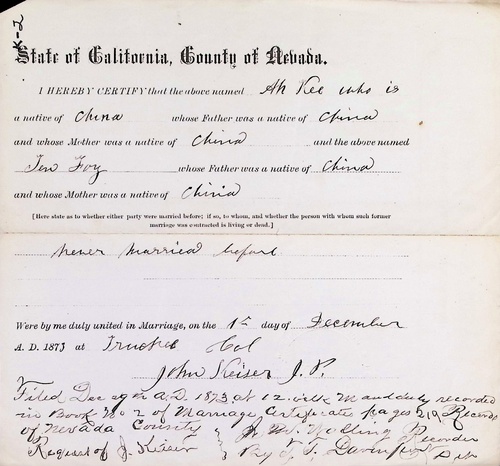 K-2
State of California, County of Nevada.
I HEREBY CERTIFY that the above named Ah Kee who is
a native of China whose Father was a native of China
and whose Mother was a native of China and the above named
Jen Foy whose Father was a native of China
and whose Mother was a native of China
[Here state as to whether either party were married before; if so, to whom, and whether the person with whom such former
marriage was contracted is living or dead.]
Never married before
Were by me duly united in Marriage, on the 1st day of December
A. D. 1873 at Truckee Cal
John Keiser J. P.
Filed Dec A.D. 1873 at 12 M and duly recorded
in Book No 2 of Marriage Certificates page 219 Records
of Nevada County Recorder
Request of J. Keiser By T. T. Davenport Dep